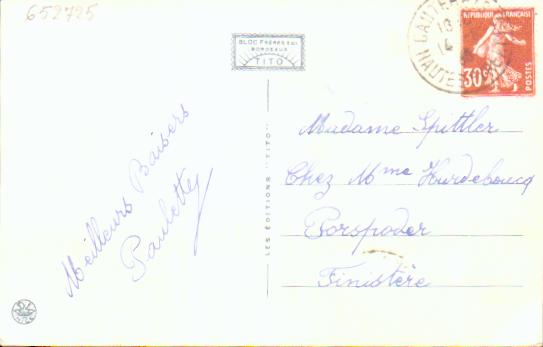 652725
BLOC FRÈRES SUC
BORDEAUX
TITO
REPUBLIQUE FRANÇAISE
30c
POSTES
LES ÉDITIONS "TITO"
Meilleurs Baisers
Paulette
Madame Spittler
Chez Mme Kurdeboucq
Porspoder
Finistère